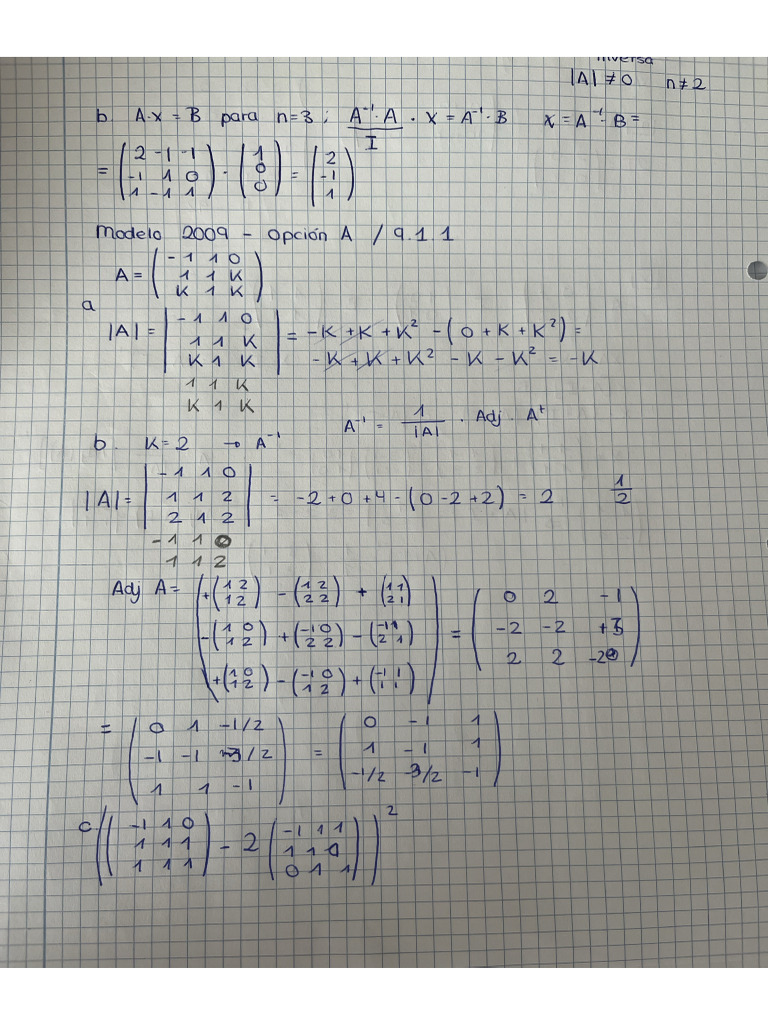 inversa
|A| ≠ 0 n ≠ 2
b. A·x = B para n=3 ; A⁻¹·A · X = A⁻¹·B X = A⁻¹·B =
I
= (2 -1 -1 / -1 1 0 / 1 -1 1) · (1 / 0 / 0) = (2 / -1 / 1)
Modelo 2009 - Opción A / 9.1.1
A = (-1 1 0 / 1 1 K / K 1 K)
a
|A| = |-1 1 0 / 1 1 K / K 1 K| = -K + K + K² - (0 + K + K²) =
-K + K + K² - K - K² = -K
1 1 K
K 1 K
A⁻¹ = 1/|A| · Adj. Aᵗ
b. K=2 → A⁻¹
|A| = |-1 1 0 / 1 1 2 / 2 1 2| = -2+0+4-(0-2+2) = 2 1/2
-1 1 0
1 1 2
Adj A = (+(1 2 / 1 2) -(1 2 / 2 2) +(1 1 / 2 1) / -(1 0 / 1 2) +(-1 0 / 2 2) -(-1 1 / 2 1) / +(1 0 / 1 2) -(-1 0 / 1 2) +(-1 1 / 1 1)) = (0 2 -1 / -2 -2 +3 / 2 2 -2)
= (0 1 -1/2 / -1 -1 -3/2 / 1 1 -1) = (0 -1 1 / 1 -1 1 / -1/2 -3/2 -1)
c. ((-1 1 0 / 1 1 1 / 1 1 1) - 2 (-1 1 1 / 1 1 0 / 0 1 1))²